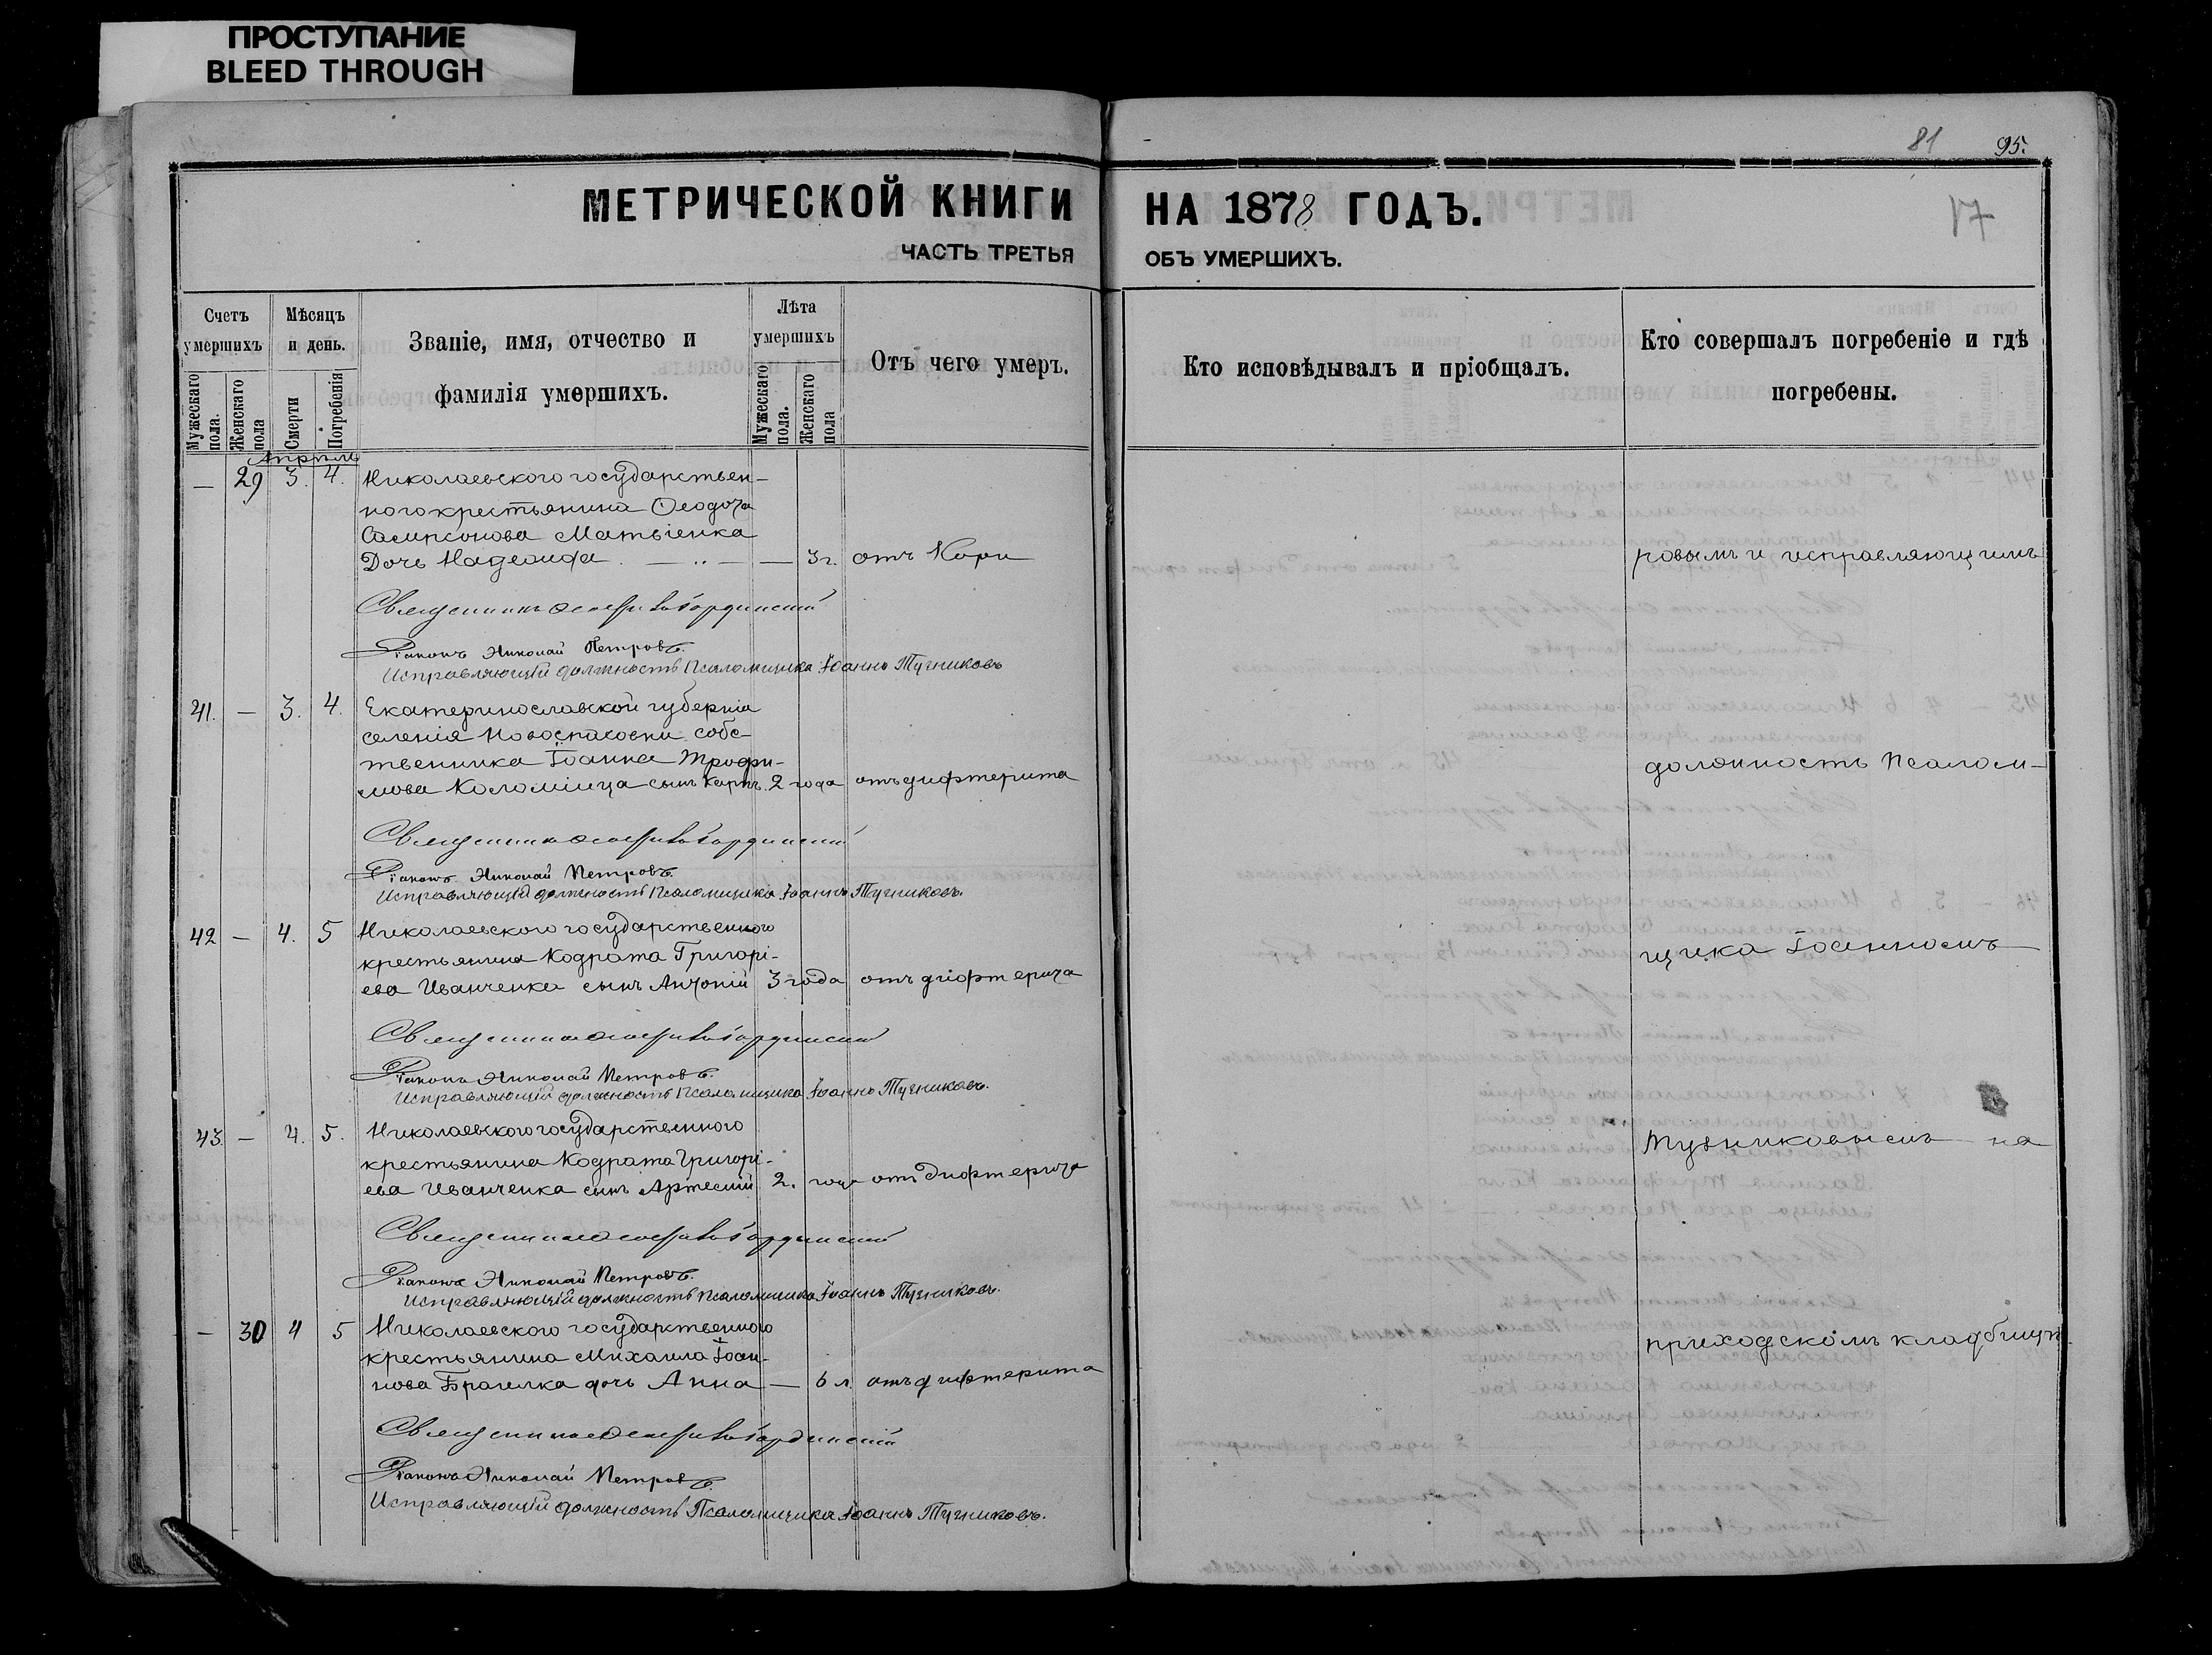 ПРОСТУПАНИЕ
BLEED THROUGH
81 95.
МЕТРИЧЕСКОЙ КНИГИ НА 1878 ГОДЪ.
17
ЧАСТЬ ТРЕТЬЯ ОБЪ УМЕРШИХЪ.
Счетъ умершихъ
Мужескаго пола.
Женскаго пола
Мѣсяцъ и день.
Смерти
Погребенія
Званіе, имя, отчество и фамилія умершихъ.
Лѣта умершихъ
Мужескаго пола.
Женскаго пола
Отъ чего умеръ.
Кто исповѣдывалъ и пріобщалъ.
Кто совершалъ погребеніе и гдѣ погребены.
Апрѣль
— 29 3. 4. Николаевского государствен-
ного крестьянина Ѳеодота
Самсонова Матвіенка
Дочь — — 3 г. отъ Кори
ровымъ и исправляющимъ
Священникъ
Діаконъ Николай Петровъ.
Исправляющій должность Псаломщика Іоаннъ Тучниковъ
41. — 3. 4. Екатеринославской губерніи
селенія Новоспасовки собс-
твенника Іоанна Трофи-
мова Коломійца сынъ Карпъ. 2 года отъ дифтерита
должность Псалом-
Священникъ
Діаконъ Николай Петровъ.
Исправляющій должность Псаломщика Іоаннъ Тучниковъ.
42 — 4. 5 Николаевского государственного
крестьянина Кодрата Григорі-
ева Иванченка сынъ Антоній 3 года отъ дифтерита
щика Іоанномъ
Священникъ
Діаконъ Николай Петровъ.
Исправляющій должность Псаломщика Іоаннъ Тучниковъ.
43. — 4. 5. Николаевского государственного
крестьянина Кодрата Григорі-
ева Иванченка сынъ Артемій 2. года отъ Дифтерита
Тучниковымъ на
Священникъ
Діаконъ Николай Петровъ.
Исправляющій должность Псаломщика Іоаннъ Тучниковъ.
— 30 4 5 Николаевского государственного
крестьянина Михаила Іоан-
нова дочь Анна — 6 л. отъ дифтерита
приходскомъ кладбищѣ.
Священникъ
Діаконъ Николай Петровъ.
Исправляющій должность Псаломщика Іоаннъ Тучниковъ.